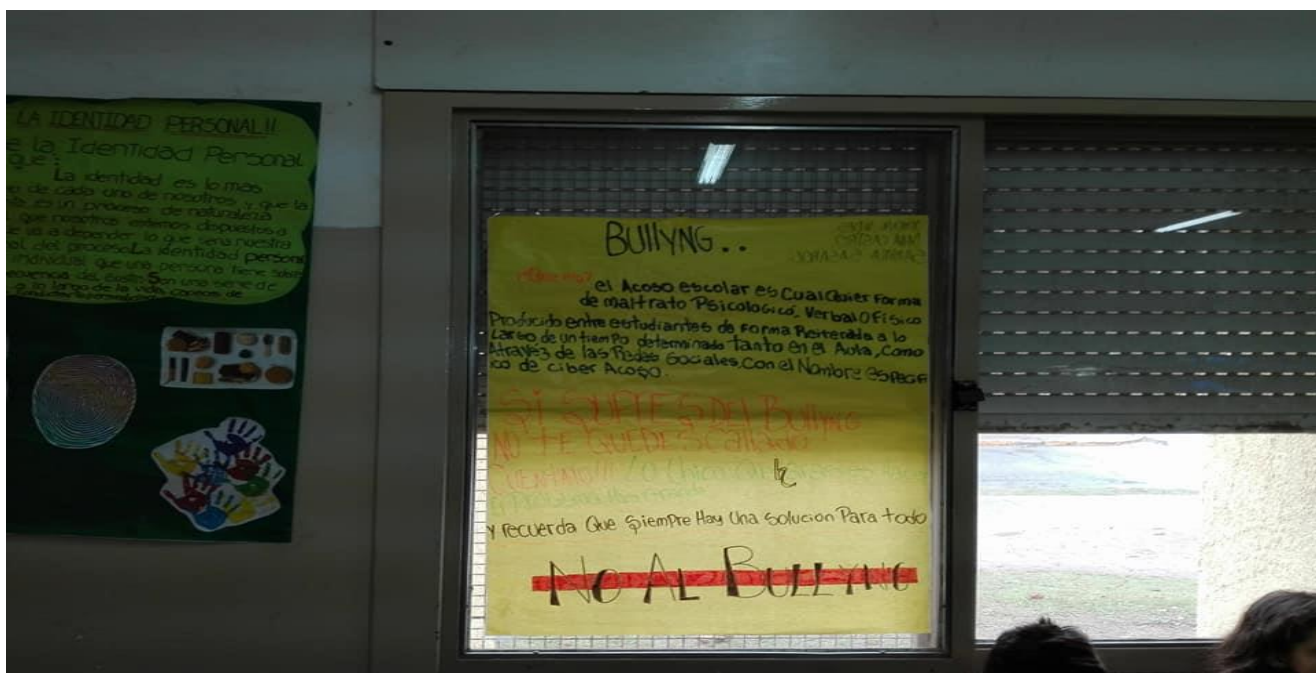 LA IDENTIDAD PERSONAL!!
e la Identidad Personal
que:
La identidad es lo mas
o de cada uno de nosotros y que la
es un proceso de naturaleza
que nosotros estemos dispuestos a
va a depender lo que sera nuestra
del proceso. La identidad personal
individual que una persona tiene sobre
Son una serie de
a lo largo de la vida, capaces de
BUllYNG..
¿Que es?
el Acoso escolar es CualQuier Forma
de maltrato Psicologico, Verbal O Fisico
Producido entre estudiantes de Forma Reiterada a lo
Largo de un tiempo determinado tanto en el Aula, Como
Atravéz de las Redes Sociales, Con el Nombre especif
ico de ciber Acoso.
Si SUFRES DEL Bullyng
NO TE QUEDES callado
y recuerda Que Siempre Hay Una Solucion Para todo
NO AL BULLYNG